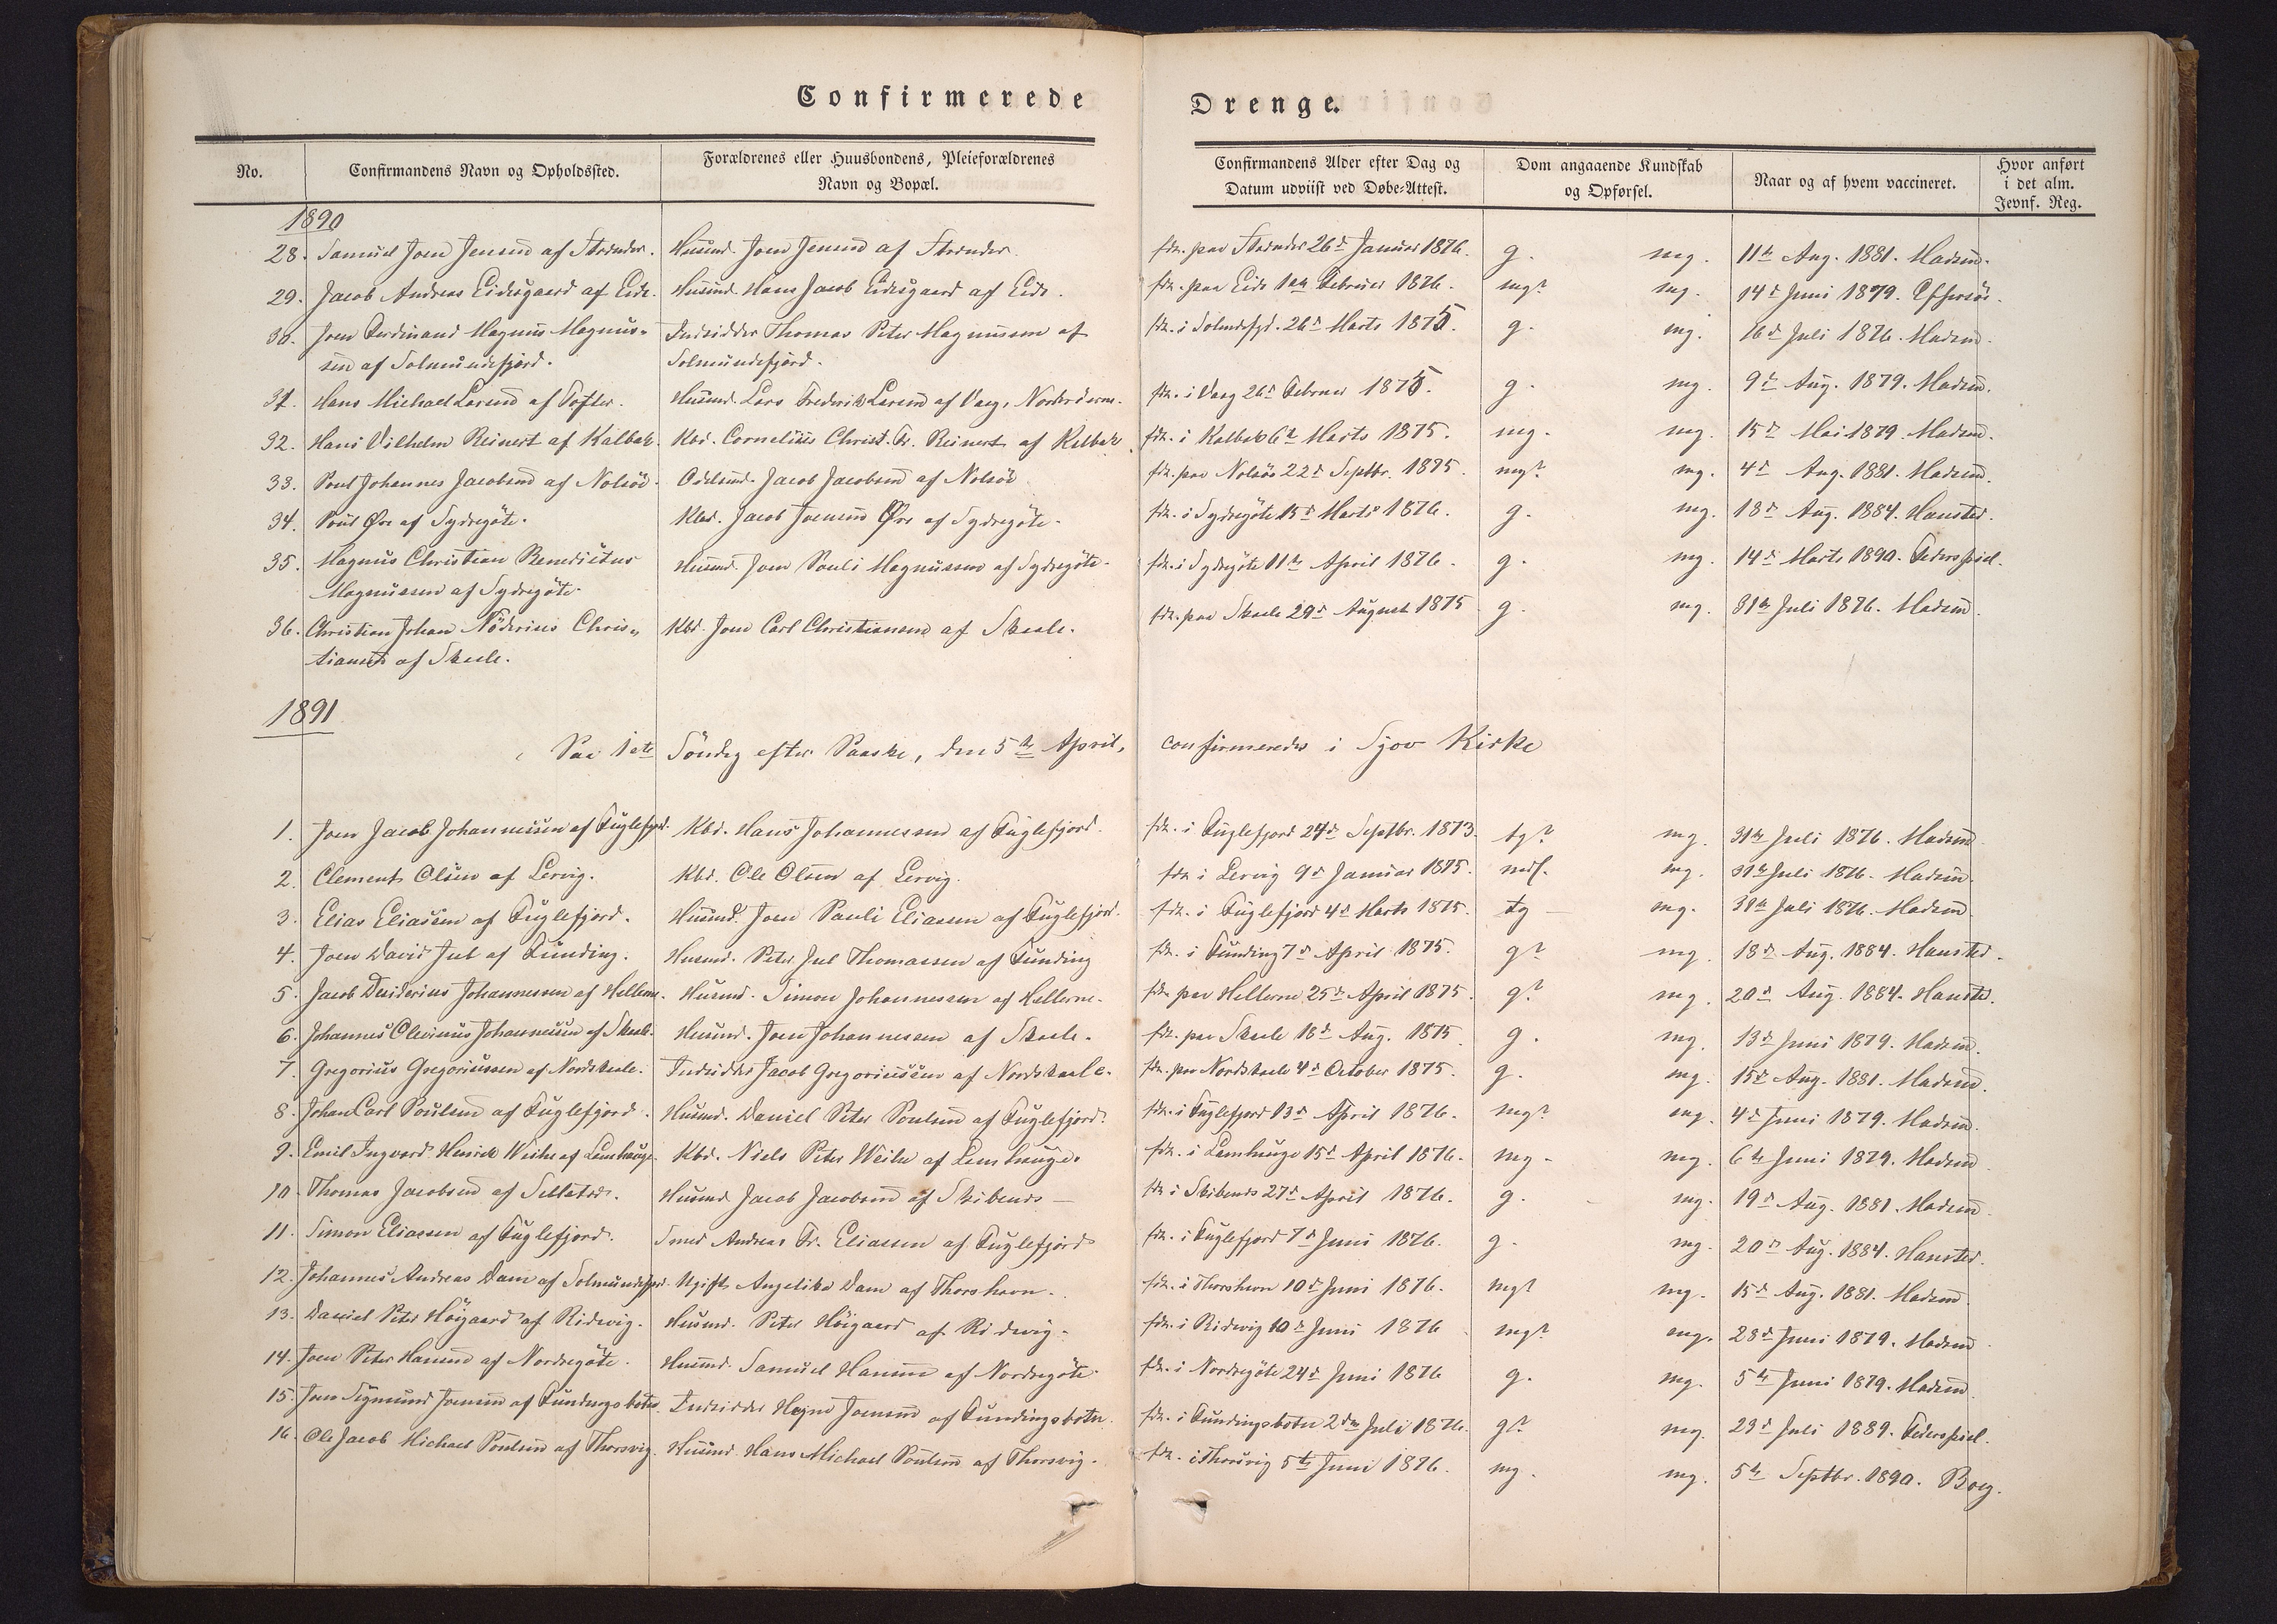 Confirmerede Drenge.
No. Confirmandens Navn og Opholdssted. Forældrenes eller Huusbondens, Pleieforældrenes Navn og Bopæl. Confirmandens Alder efter Dag og Datum udviist ved Døbe-Attest. Dom angaaende Kundskab og Opførsel. Naar og af hvem vaccineret. Hvor anført i det alm. Jevnf. Reg.
1890
28. Samuel Joen Jensen af Strender. Husmd. Joen Jensen af Strender. fdt. paa Strender 26d Januar 1876. g. mg. 11te Aug. 1881. Madsen.
29. Jacob Andreas Eidesgaard af Eide. Husmd. Hans Jacob Eidesgaard af Eide. fdt. paa Eide Februar 1876. mg? mg. 14d Juni 1879. Effersöe.
30. Joen Ferdinand Magnus Magnus- Indsidder Thomas Peter Magnussen af fdt. i Solmdefjd. 26d Marts 1875. g. mg. 16d Juli 1876. Madsen.
sen af Solmundefjord. Solmundefjord.
31. Hans Michael Larsen af Tofter. Husmd. Lars Frederik Larsen af Vaag, fdt. i Vaag 26d Februar 1875. g. mg. 9d Aug. 1879. Madsen.
32. Hans Vilhelm Reinert af Kalbak. Kbd. Cornelius Christ. Fr. Reinert af Kalbak fdt. i Kalbak 6te Marts 1875. mg. mg. 15d Mai 1879. Madsen.
33. Poul Johannes Jacobsen af Nolsöe. Odelsmd. Jacob Jacobsen af Nolsöe fdt. paa Nolsöe 22d Septbr. 1875. mg? mg. 4d Aug. 1881. Madsen.
34. Poul Øre af Sydregöte. Kbd. Jacob Joensen Øre af Sydregöte. fdt. i Sydregöte 15d Marts 1876. g. mg. 18d Aug. 1884. Hansted.
35. Magnus Christian Benedictus Husmd. Joen Pauli Magnussen af Sydregöte. fdt. i Sydregöte 11te April 1876. g. mg. 14d Marts 1890. Federspiel.
Magnussen af Sydregöte.
36. Christian Johan Chris- Kbd. Joen Carl Christiansen af Skaale. fdt. paa Skaale 29d August 1875 g. mg. 31te Juli 1876. Madsen.
tiansen af Skaale.
1891
Paa 1ste Söndag efter Paaske, den 5te April, confirmeredes i Sjov Kirke
1. Joen Jacob Johannessen af Fuglefjord. Kbd. Hans Johannessen af Fuglefjord. fdt. i Fuglefjord 24d Septbr. 1873. tg? mg. 31te Juli 1876. Madsen
2. Clement Olsen af Lervig. Kbd. Ole Olsen af Lervig. fdt. i Lervig 9d Januar 1875. mdl. mg. 31te Juli 1876. Madsen.
3. Elias Eliassen af Fuglefjord. Husmd. Joen Pauli Eliassen af Fuglefjord. fdt. i Fuglefjord 4d Marts 1875. tg — mg. 31te Juli 1876. Madsen.
4. Joen David Juul af Funding. Husmd. Peter Juul Thomassen af Funding fdt. i Funding 7d April 1875. g? mg. 18d Aug. 1884. Hansted.
5. Jacob Desiderius Johannessen af Hellerne. Husmd. Simon Johannessen af Hellerne. fdt. paa Hellerne 25d April 1875. g? mg. 20d Aug. 1884. Hansted.
6. Johannes Olevinus Johannessen af Skaale. Husmd. Joen Johannessen af Skaale. fdt. paa Skaale 18d Aug. 1875. g. mg. 13d Juni 1879. Madsen.
7. Gregorius Gregoriussen af Nordskaale. Indsidder Jacob Gregoriussen af Nordskaale. fdt. paa Nordskaale 4d October 1875. g. mg. 15d Aug. 1881. Madsen.
8. Johan Carl Poulsen af Fuglefjord. Husmd. Daniel Peter Poulsen af Fuglefjord. fdt. i Fuglefjord 13d April 1876. mg? mg. 4d Juni 1879. Madsen.
9. Emil Ingvard Henrik Weihe af Lamhauge. Kbd. Niels Peter Weihe af Lamhauge. fdt. i Lamhauge 15d April 1876. mg. mg. 6te Juni 1879. Madsen
10. Thomas Jacobsen af Selletræd. Husmd. Jacob Jacobsen af Skibenes — fdt. i Skibenes 27d April 1876. g. mg. 19d Aug. 1881. Madsen
11. Simon Eliassen af Fuglefjord. Smed Andreas Fr. Eliassen af Fuglefjord fdt. i Fuglefjord 7d Juni 1876. g. mg. 20d Aug. 1884. Hansted.
12. Johannes Andreas Dam af Solmundefjord. Ugift Angelika Dam af Thorshavn. fdt. i Thorshavn 10d Juni 1876. mg? mg. 15d Aug. 1881. Madsen
13. Daniel Peter Höjgaard af Ridevig. Husmd. Peter Höigaard af Ridevig. fdt. i Ridevig 10d Juni 1876 mg? mg. 28d Juni 1879. Madsen
14. Joen Peter Hansen af Nordregöte. Husmd. Samuel Hansen af Nordregöte fdt. i Nordregöte 24d Juni 1876 g. mg. 5te Juni 1879. Madsen
15. Joen Sigmund Joensen af Fundingsbotn. Indsidder Joensen af Fundingsbotn. fdt. i Fundingsbotn 2den Juli 1876. g? mg. 23d Juli 1889. Federspiel.
16. Ole Jacob Michael Poulsen af Thorsvig. Husmd. Hans Michael Poulsen af Thorsvig. fdt. i Thorsvig 5te Juni 1876. mg. mg. 5te Septbr. 1890. Boeg.